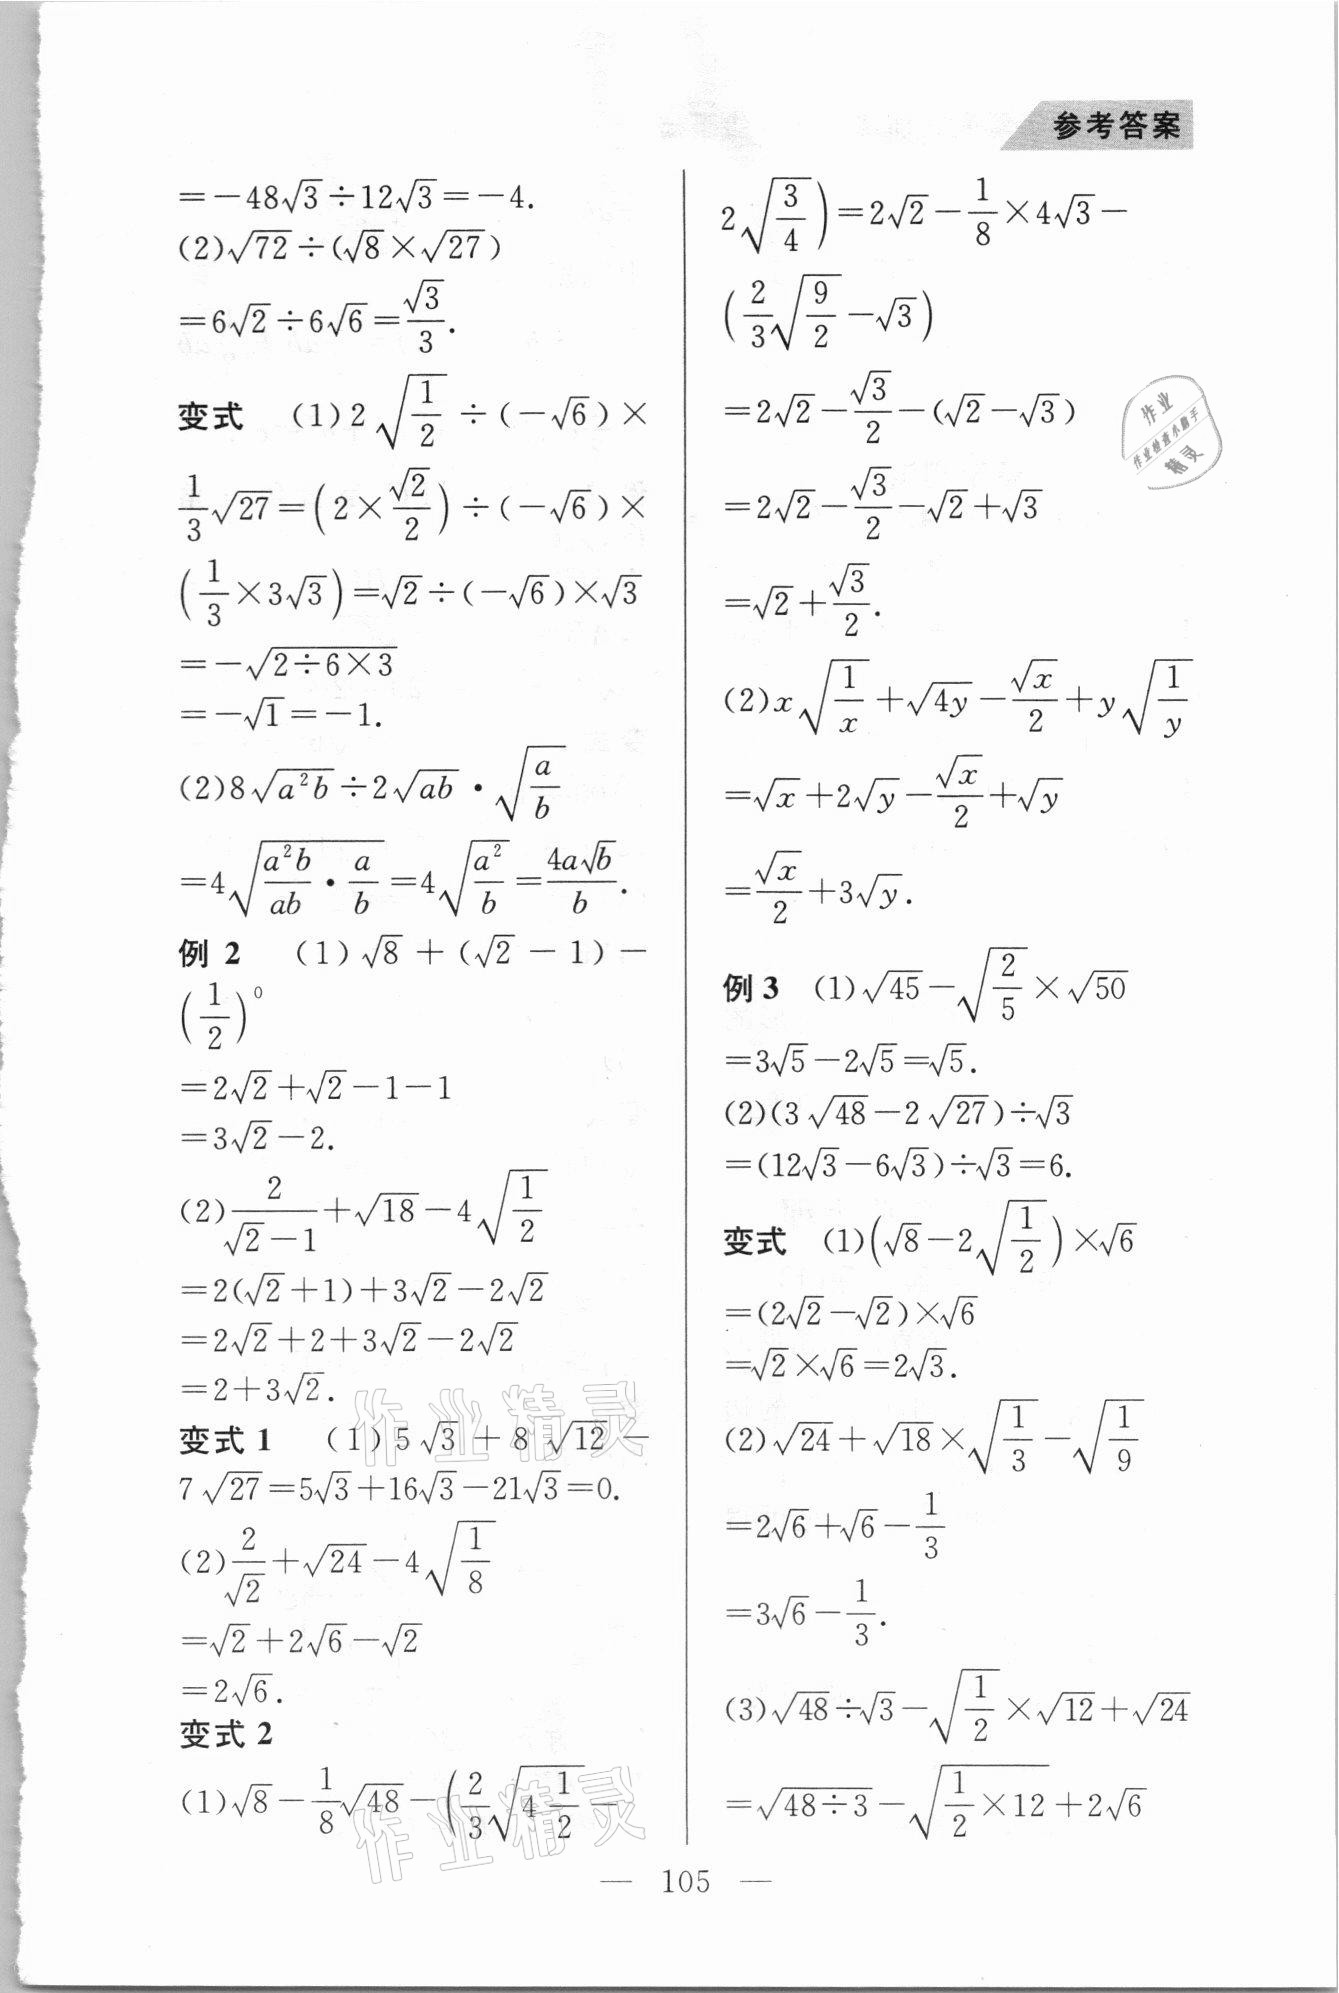 参考答案
=-48√3÷12√3=-4.
(2)√72÷(√8×√27)
=6√2÷6√6=√3/3.
变式 (1)2√(1/2)÷(-√6)×
1/3√27=(2×√2/2)÷(-√6)×
(1/3×3√3)=√2÷(-√6)×√3
=-√(2÷6×3)
=-√1=-1.
(2)8√(a²b)÷2√(ab)·√(a/b)
=4√(a²b/ab·a/b)=4√(a²/b)=4a√b/b.
例2 (1)√8+(√2-1)-
(1/2)⁰
=2√2+√2-1-1
=3√2-2.
(2)2/(√2-1)+√18-4√(1/2)
=2(√2+1)+3√2-2√2
=2√2+2+3√2-2√2
=2+3√2.
变式1 (1)5√3+8√12-
7√27=5√3+16√3-21√3=0.
(2)2/√2+√24-4√(1/8)
=√2+2√6-√2
=2√6.
变式2
(1)√8-1/8√48-(2/3√(4 1/2)-
2√(3/4))=2√2-1/8×4√3-
(2/3√(9/2)-√3)
=2√2-√3/2-(√2-√3)
=2√2-√3/2-√2+√3
=√2+√3/2.
(2)x√(1/x)+√(4y)-√x/2+y√(1/y)
=√x+2√y-√x/2+√y
=√x/2+3√y.
例3 (1)√45-√(2/5)×√50
=3√5-2√5=√5.
(2)(3√48-2√27)÷√3
=(12√3-6√3)÷√3=6.
变式 (1)(√8-2√(1/2))×√6
=(2√2-√2)×√6
=√2×√6=2√3.
(2)√24+√18×√(1/3)-√(1/9)
=2√6+√6-1/3
=3√6-1/3.
(3)√48÷√3-√(1/2)×√12+√24
=√(48÷3)-√(1/2×12)+2√6
— 105 —
作业
作业检查小助手
精灵
作业精灵
作业精灵